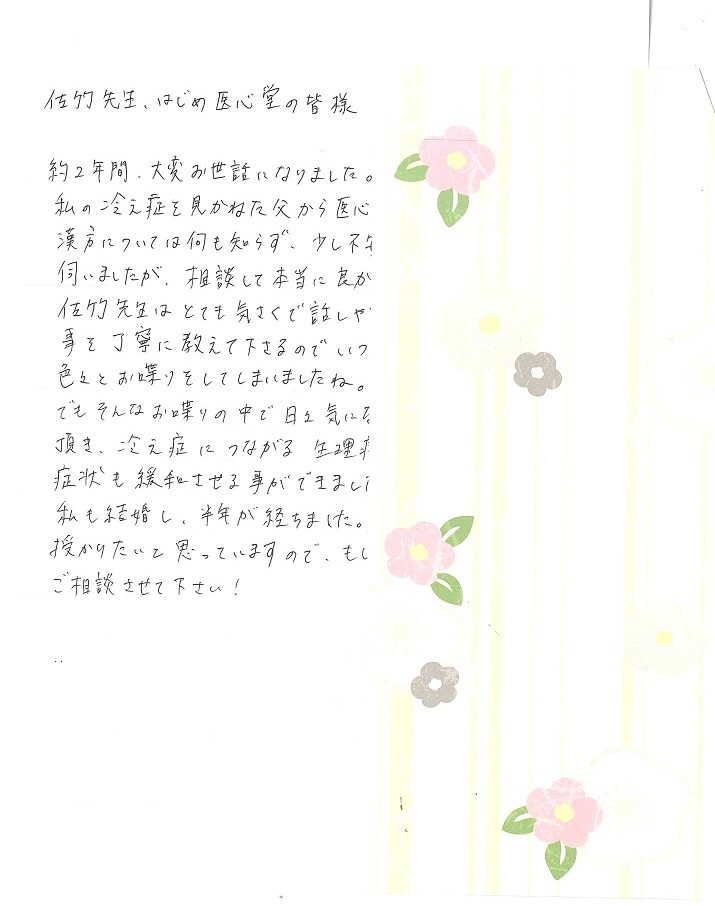 佐竹先生、はじめ医心堂の皆様
約2年間、大変お世話になりました。
私の冷え症を見かねた父から医心
漢方については何も知らず、少し不
伺いましたが、相談して本当に良か
佐竹先生はとても気さくで話しや
事を丁寧に教えて下さるのでいつ
色々とお喋りをしてしまいましたね。
でもそんなお喋りの中で日々気に
頂き、冷え症につながる生理
症状も緩和させる事ができまし
私も結婚し、半年が経ちました。
授かりたいと思っていますので、もし
ご相談させて下さい!